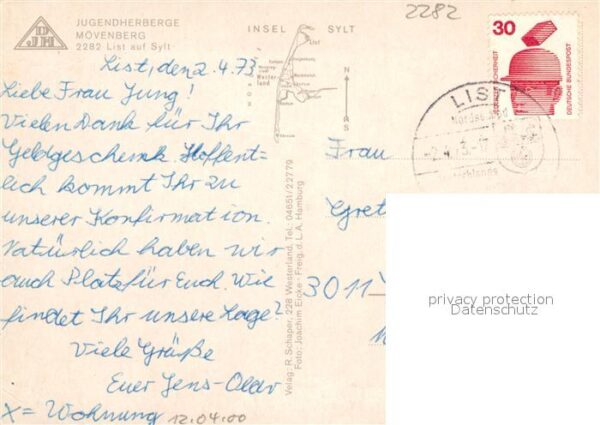 JUGENDHERBERGE
MÖVENBERG
2282 List auf Sylt
DJH
INSEL SYLT
2282
30
DEUTSCHE BUNDESPOST
LIST
List, den 2.4.73
Liebe Frau Jung!
Vielen Dank für Ihr
Geldgeschenk. Hoffent=
lich kommt Ihr zu
unserer Konfirmation.
Natürlich haben wir
auch Platz für Euch. Wie
findet Ihr unsere Lage?
Viele Grüße
Euer Jens-Olav
X = Wohnung
12.04.00
Verlag: R. Schaper, 228 Westerland, Tel. 04651/22779
Foto: Joachim Eicke · Freig. d. L.A. Hamburg
N
S
Frau
Gret
3011
privacy protection
Datenschutz